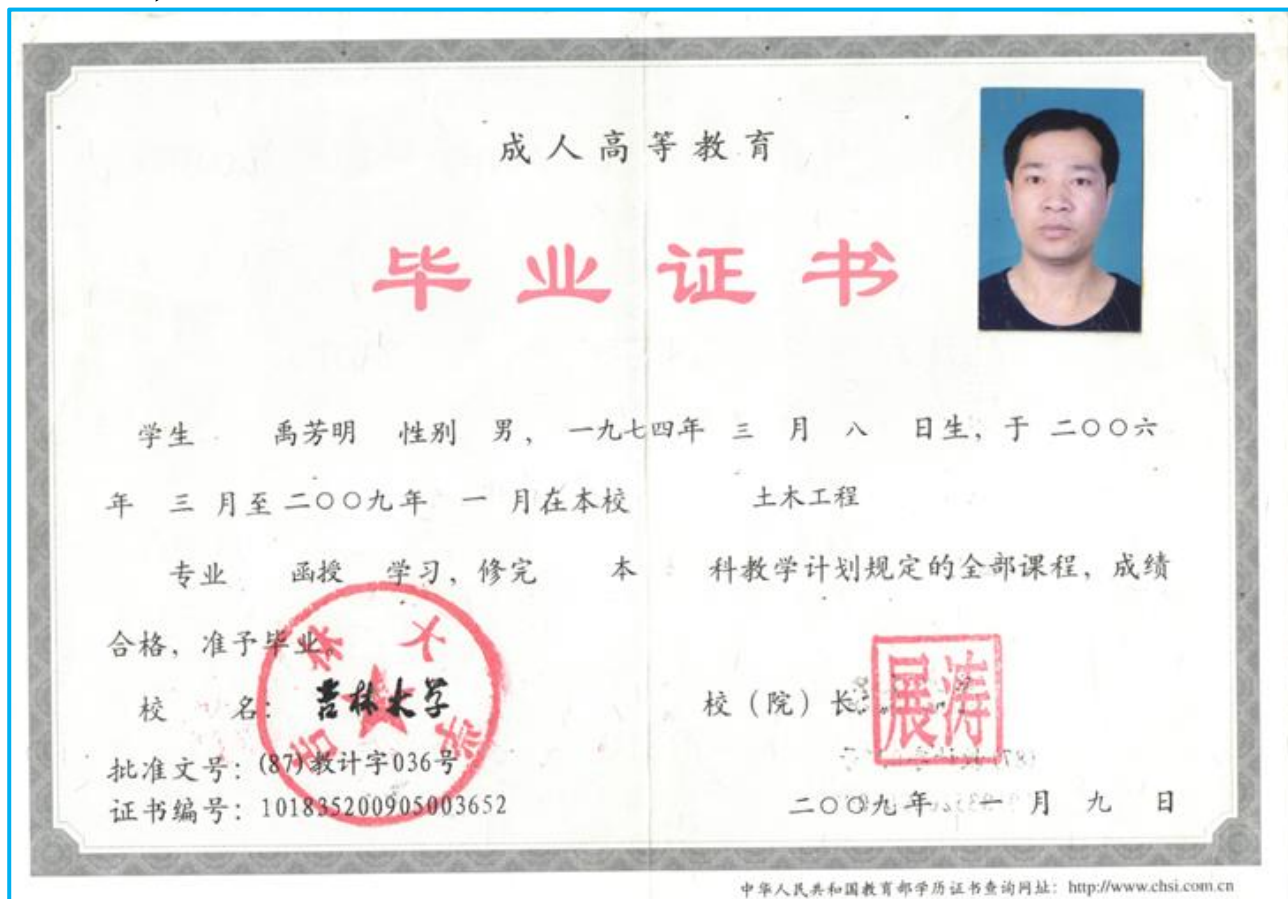 成人高等教育
毕业证书
学生 禹芳明 性别 男, 一九七四年 三 月 八 日生, 于 二〇〇六
年 三 月至 二〇〇九年 一 月在本校 土木工程
专业 函授 学习, 修完 本 科教学计划规定的全部课程, 成绩
合格, 准予毕业。
吉林大学
校 名: 吉林大学
校（院）长:
展涛
批准文号: (87)教计字036号
证书编号: 101835200905003652
二〇〇九年 一 月 九 日
中华人民共和国教育部学历证书查询网址: http://www.chsi.com.cn